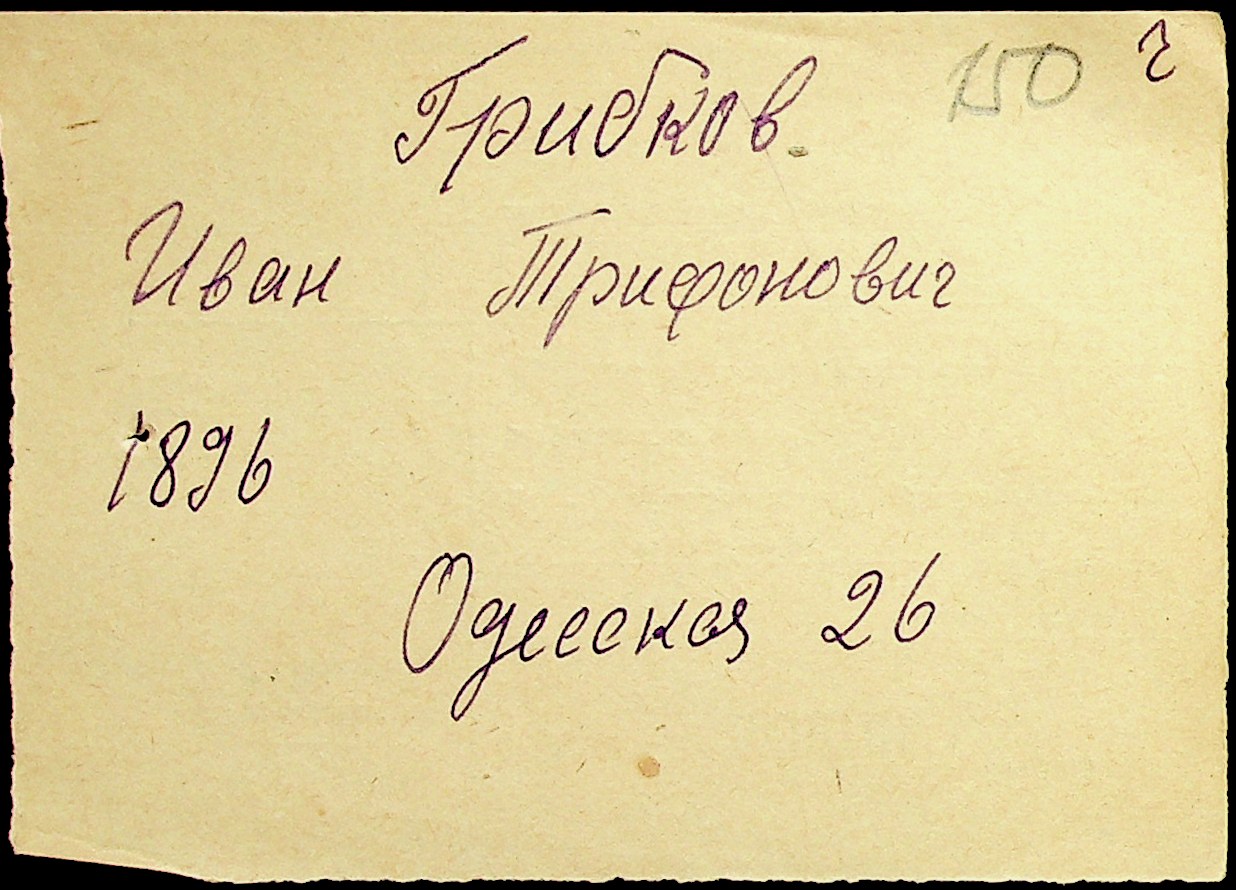 150 г
Грибков.
Иван Трифонович
1896
Одесская 26